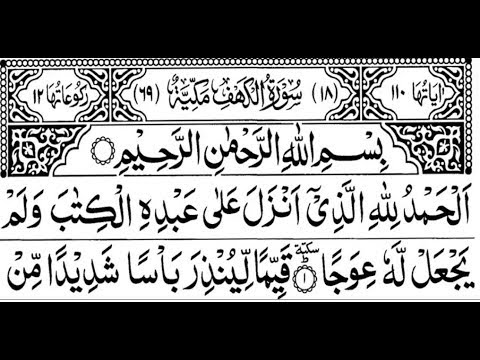 اٰیَاتُهَا ١١٠ (١٨) سُوْرَةُ الْكَهْفِ مَكِّیَّةٌ (٦٩) رُكُوْعَاتُهَا ١٢
بِسْمِ اللّٰهِ الرَّحْمٰنِ الرَّحِیْمِ
اَلْحَمْدُ لِلّٰهِ الَّذِیْۤ اَنْزَلَ عَلٰی عَبْدِهِ الْكِتٰبَ وَلَمْ
یَجْعَلْ لَّهٗ عِوَجًا ؕ سكتة ١ قَیِّمًا لِّیُنْذِرَ بَاْسًا شَدِیْدًا مِّنْ